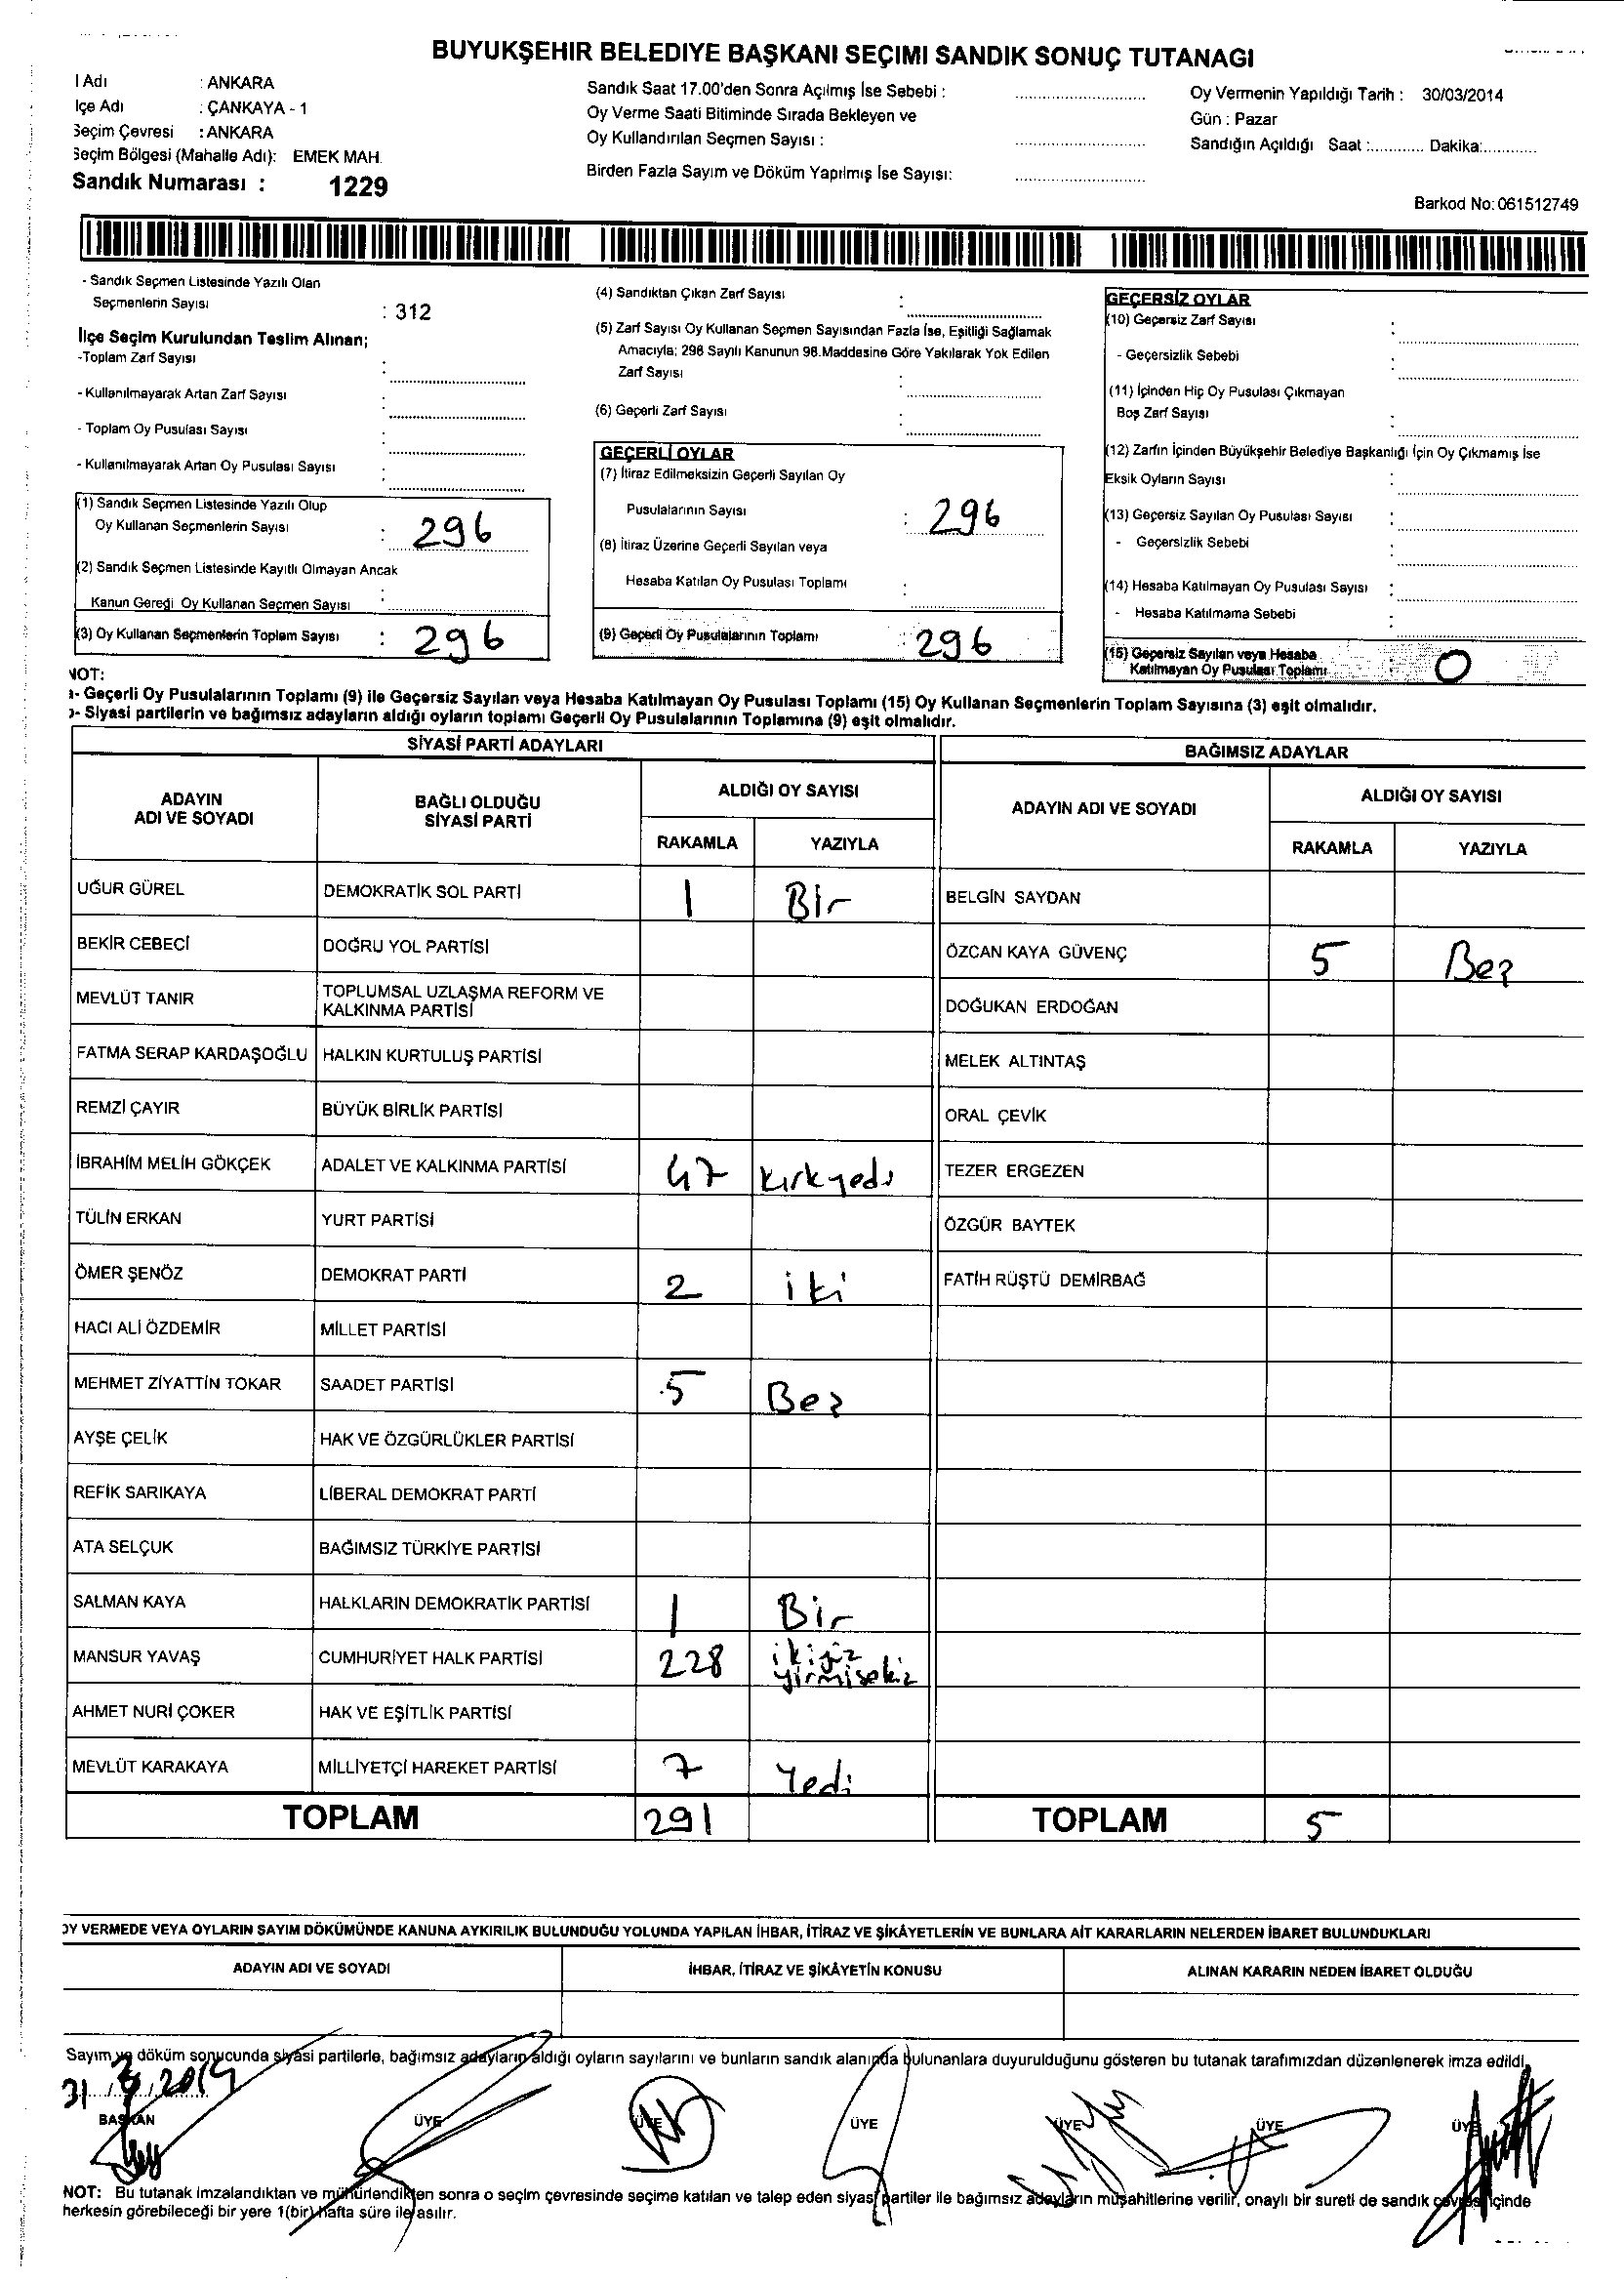 BUYUKŞEHIR BELEDIYE BAŞKANI SEÇIMI SANDIK SONUÇ TUTANAGI
l Adı : ANKARA
lçe Adı : ÇANKAYA - 1
Seçim Çevresi : ANKARA
Seçim Bölgesi (Mahalle Adı): EMEK MAH.
Sandık Numarası : 1229
Sandık Saat 17.00'den Sonra Açılmış İse Sebebi :
Oy Verme Saati Bitiminde Sırada Bekleyen ve
Oy Kullandırılan Seçmen Sayısı :
Birden Fazla Sayım ve Döküm Yapılmış İse Sayısı:
Oy Vermenin Yapıldığı Tarih : 30/03/2014
Gün : Pazar
Sandığın Açıldığı Saat :............ Dakika:............
Barkod No: 061512749
- Sandık Seçmen Listesinde Yazılı Olan
Seçmenlerin Sayısı : 312
İlçe Seçim Kurulundan Teslim Alınan;
-Toplam Zarf Sayısı :
- Kullanılmayarak Artan Zarf Sayısı :
- Toplam Oy Pusulası Sayısı :
- Kullanılmayarak Artan Oy Pusulası Sayısı :
(1) Sandık Seçmen Listesinde Yazılı Olup
Oy Kullanan Seçmenlerin Sayısı : 296
(2) Sandık Seçmen Listesinde Kayıtlı Olmayan Ancak
Kanun Gereği Oy Kullanan Seçmen Sayısı :
(3) Oy Kullanan Seçmenlerin Toplam Sayısı : 296
(4) Sandıktan Çıkan Zarf Sayısı :
(5) Zarf Sayısı Oy Kullanan Seçmen Sayısından Fazla İse, Eşitliği Sağlamak
Amacıyla; 298 Sayılı Kanunun 98.Maddesine Göre Yakılarak Yok Edilen
Zarf Sayısı :
(6) Geçerli Zarf Sayısı :
GEÇERLİ OYLAR
(7) İtiraz Edilmeksizin Geçerli Sayılan Oy
Pusulalarının Sayısı : 296
(8) İtiraz Üzerine Geçerli Sayılan veya
Hesaba Katılan Oy Pusulası Toplamı :
(9) Geçerli Oy Pusulalarının Toplamı : 296
GEÇERSİZ OYLAR
(10) Geçersiz Zarf Sayısı :
- Geçersizlik Sebebi :
(11) İçinden Hiç Oy Pusulası Çıkmayan
Boş Zarf Sayısı :
(12) Zarfın İçinden Büyükşehir Belediye Başkanlığı İçin Oy Çıkmamış İse
Eksik Oyların Sayısı :
(13) Geçersiz Sayılan Oy Pusulası Sayısı :
- Geçersizlik Sebebi :
(14) Hesaba Katılmayan Oy Pusulası Sayısı :
- Hesaba Katılmama Sebebi :
(15) Geçersiz Sayılan veya Hesaba
Katılmayan Oy Pusulası Toplamı : 0
NOT:
a- Geçerli Oy Pusulalarının Toplamı (9) ile Geçersiz Sayılan veya Hesaba Katılmayan Oy Pusulası Toplamı (15) Oy Kullanan Seçmenlerin Toplam Sayısına (3) eşit olmalıdır.
b- Siyasi partilerin ve bağımsız adayların aldığı oyların toplamı Geçerli Oy Pusulalarının Toplamına (9) eşit olmalıdır.
SİYASİ PARTİ ADAYLARI
ADAYIN ADI VE SOYADI BAĞLI OLDUĞU SİYASİ PARTİ ALDIĞI OY SAYISI
RAKAMLA YAZIYLA
UĞUR GÜREL DEMOKRATİK SOL PARTİ 1 Bir
BEKİR CEBECİ DOĞRU YOL PARTİSİ
MEVLÜT TANIR TOPLUMSAL UZLAŞMA REFORM VE KALKINMA PARTİSİ
FATMA SERAP KARDAŞOĞLU HALKIN KURTULUŞ PARTİSİ
REMZİ ÇAYIR BÜYÜK BİRLİK PARTİSİ
İBRAHİM MELİH GÖKÇEK ADALET VE KALKINMA PARTİSİ 47 Kırkyedi
TÜLİN ERKAN YURT PARTİSİ
ÖMER ŞENÖZ DEMOKRAT PARTİ 2 iki
HACI ALİ ÖZDEMİR MİLLET PARTİSİ
MEHMET ZİYATTİN TOKAR SAADET PARTİSİ 5 Beş
AYŞE ÇELİK HAK VE ÖZGÜRLÜKLER PARTİSİ
REFİK SARIKAYA LİBERAL DEMOKRAT PARTİ
ATA SELÇUK BAĞIMSIZ TÜRKİYE PARTİSİ
SALMAN KAYA HALKLARIN DEMOKRATİK PARTİSİ 1 Bir
MANSUR YAVAŞ CUMHURİYET HALK PARTİSİ 228 ikiyüz yirmisekiz
AHMET NURİ ÇOKER HAK VE EŞİTLİK PARTİSİ
MEVLÜT KARAKAYA MİLLİYETÇİ HAREKET PARTİSİ 7 Yedi
TOPLAM 291
BAĞIMSIZ ADAYLAR
ADAYIN ADI VE SOYADI ALDIĞI OY SAYISI
RAKAMLA YAZIYLA
BELGİN SAYDAN
ÖZCAN KAYA GÜVENÇ 5 Beş
DOĞUKAN ERDOĞAN
MELEK ALTINTAŞ
ORAL ÇEVİK
TEZER ERGEZEN
ÖZGÜR BAYTEK
FATİH RÜŞTÜ DEMİRBAĞ
TOPLAM 5
OY VERMEDE VEYA OYLARIN SAYIM DÖKÜMÜNDE KANUNA AYKIRILIK BULUNDUĞU YOLUNDA YAPILAN İHBAR, İTİRAZ VE ŞİKÂYETLERİN VE BUNLARA AİT KARARLARIN NELERDEN İBARET BULUNDUKLARI
ADAYIN ADI VE SOYADI İHBAR, İTİRAZ VE ŞİKÂYETİN KONUSU ALINAN KARARIN NEDEN İBARET OLDUĞU
Sayım ve döküm sonucunda siyasi partilerle, bağımsız adayların aldığı oyların sayılarını ve bunların sandık alanında bulunanlara duyurulduğunu gösteren bu tutanak tarafımızdan düzenlenerek imza edildi.
31/3/2014
BAŞKAN ÜYE ÜYE ÜYE ÜYE ÜYE ÜYE
NOT: Bu tutanak imzalandıktan ve mühürlendikten sonra o seçim çevresinde seçime katılan ve talep eden siyasi partiler ile bağımsız adayların müşahitlerine verilir, onaylı bir sureti de sandık çevresi içinde
herkesin görebileceği bir yere 1(bir) hafta süre ile asılır.